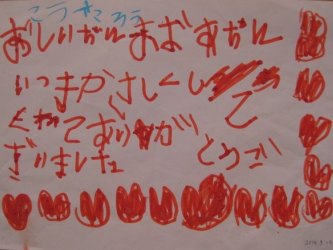 こうたろう
おじいぢゃん おばあぢゃん
いつもやさしくし て
くれてありがとうご
ざいました